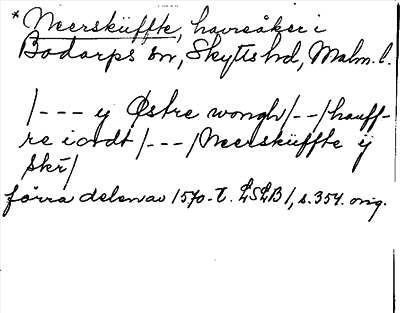 *Neersküffte, havreåker i
Bodarps sn, Skytts hd, Malm. l.
/--- y Østre wongh/--/hauff-
re iordt/---/Neersküffte ij
skr̄/
förra delen av 1570-t. LSLB1, s. 354. orig.